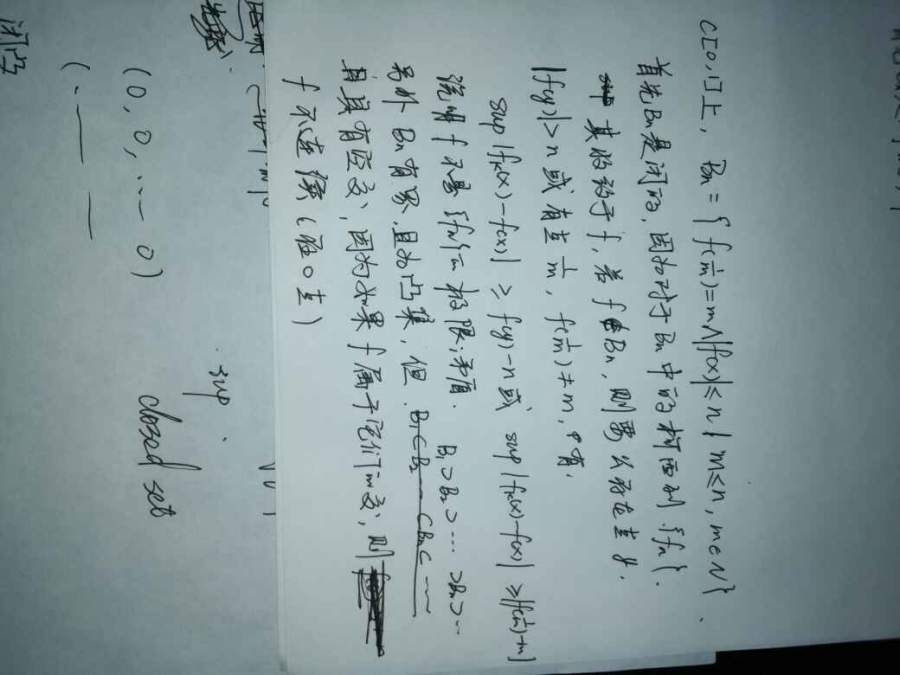 C[0,1]上, Bn = { f(1/m)=m∧|f(x)|≤n | m≤n, m∈N }.
首先Bn是闭的, 因为对于Bn中的柯西列{fn},
其收敛于f, 若f∉Bn, 则要么存在点y,
|f(y)|>n 或有点 1/m, f(1/m)≠m, 有,
sup|fk(x)-f(x)| ≥ f(y)-n 或 sup|fk(x)-f(x)| ≥ |f(1/m)-m|
说明f不是{fn}的极限,矛盾. B1⊃B2⊃… ⊃Bn⊃…
另外Bn有界,且为凸集,但
具有空交, 因为如果f属于它们的交, 则
f不连续(在0点)
(0, 0, … 0)
sup
closed set